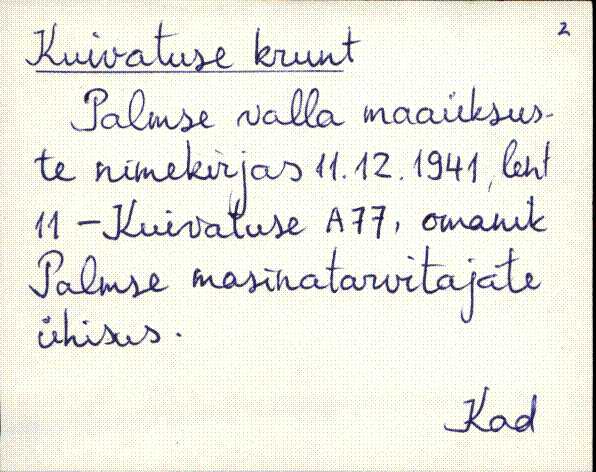 2
Kuivatuse krunt
Palmse valla maaüksus-
te nimekirjas 11.12.1941, leht
11 - Kuivatuse A77, omanik
Palmse masinatarvitajate
ühisus.
Kad